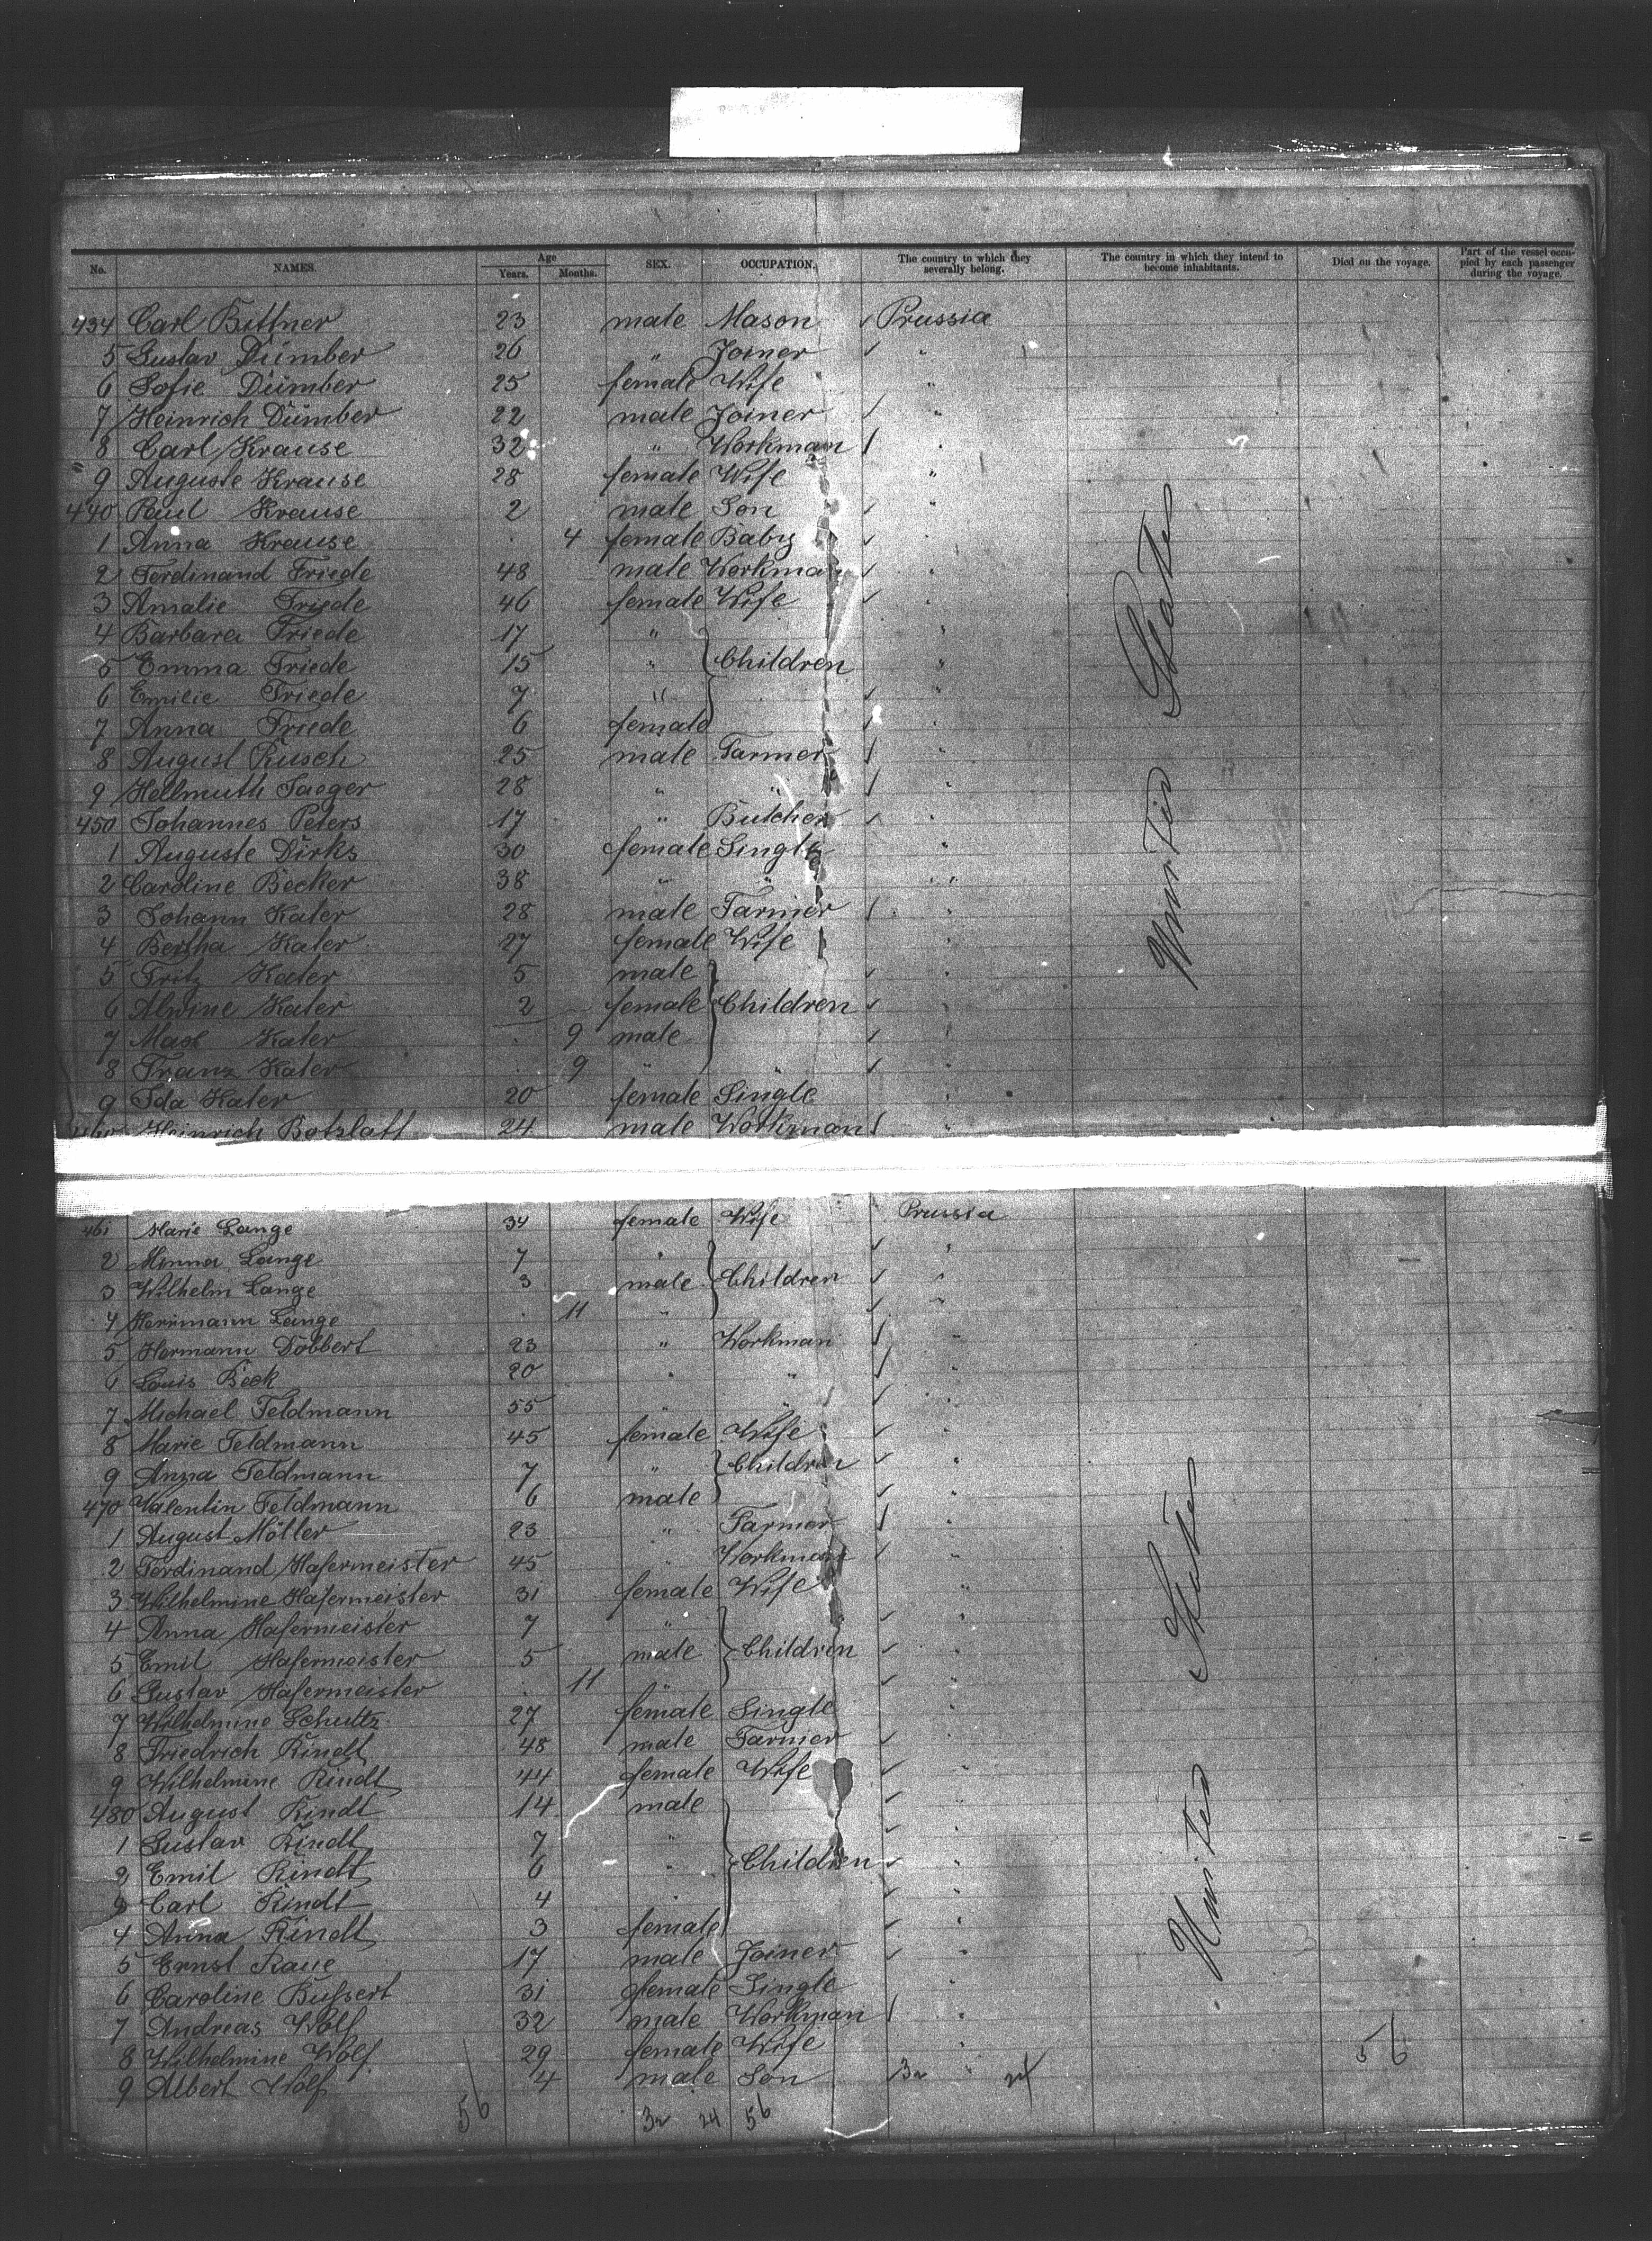 No. NAMES. Age Years. Months. SEX. OCCUPATION. The country to which they severally belong. The country in which they intend to become inhabitants. Died on the voyage. Part of the vessel occupied by each passenger during the voyage.
434 Carl Bittner 23 male Mason Prussia
5 Gustav Dümber 26 " Joiner "
6 Sofie Dümber 25 female Wife "
7 Heinrich Dümber 22 male Joiner "
8 Carl Krause 32 " Workman "
9 Auguste Krause 28 female Wife "
440 Paul Krause 2 male Son "
1 Anna Krause 4 female Baby "
2 Ferdinand Friede 48 male Workman "
3 Amalie Friede 46 female Wife "
4 Barbara Friede 17 " "
5 Emma Friede 15 " Children "
6 Emilie Friede 7 " "
7 Anna Friede 6 female "
8 August Rusch 25 male Farmer "
9 Hellmuth Jaeger 28 " " "
450 Johannes Peters 17 " Butcher "
1 Auguste Dirks 30 female Single "
2 Caroline Becker 38 " " "
3 Johann Kater 28 male Farmer "
4 Bertha Kater 27 female Wife "
5 Fritz Kater 5 male "
6 Alwine Kater 2 female Children "
7 Max Kater 9 male "
8 Franz Kater 9 " "
9 Ida Kater 20 female Single "
460 Heinrich Botzlaff 24 male Workman "
United States
461 Marie Lange 34 female Wife Prussia
2 Minna Lange 7 " "
3 Wilhelm Lange 3 male Children "
4 Herrmann Lange 11 " "
5 Hermann Döbbert 23 " Workman "
6 Louis Beck 20 " " "
7 Michael Feldmann 55 " " "
8 Marie Feldmann 45 female Wife "
9 Anna Feldmann 7 " Children "
470 Valentin Feldmann 6 male "
1 August Möller 23 " Farmer "
2 Ferdinand Hafermeister 45 " Workman "
3 Wilhelmine Hafermeister 31 female Wife "
4 Anna Hafermeister 7 " "
5 Emil Hafermeister 5 male Children "
6 Gustav Hafermeister 11 " "
7 Wilhelmine Schultz 27 female Single "
8 Friedrich Rindt 48 male Farmer "
9 Wilhelmine Rindt 44 female Wife "
480 August Rindt 14 male "
1 Gustav Rindt 7 " "
2 Emil Rindt 6 " Children "
3 Carl Rindt 4 " "
4 Anna Rindt 3 female "
5 Ernst Raue 17 male Joiner "
6 Caroline Bussert 31 female Single "
7 Andreas Wolf 32 male Workman "
8 Wilhelmine Wolf 29 female Wife "
9 Albert Wolf 4 male Son "
United States
32 24 56
56 32 24 56